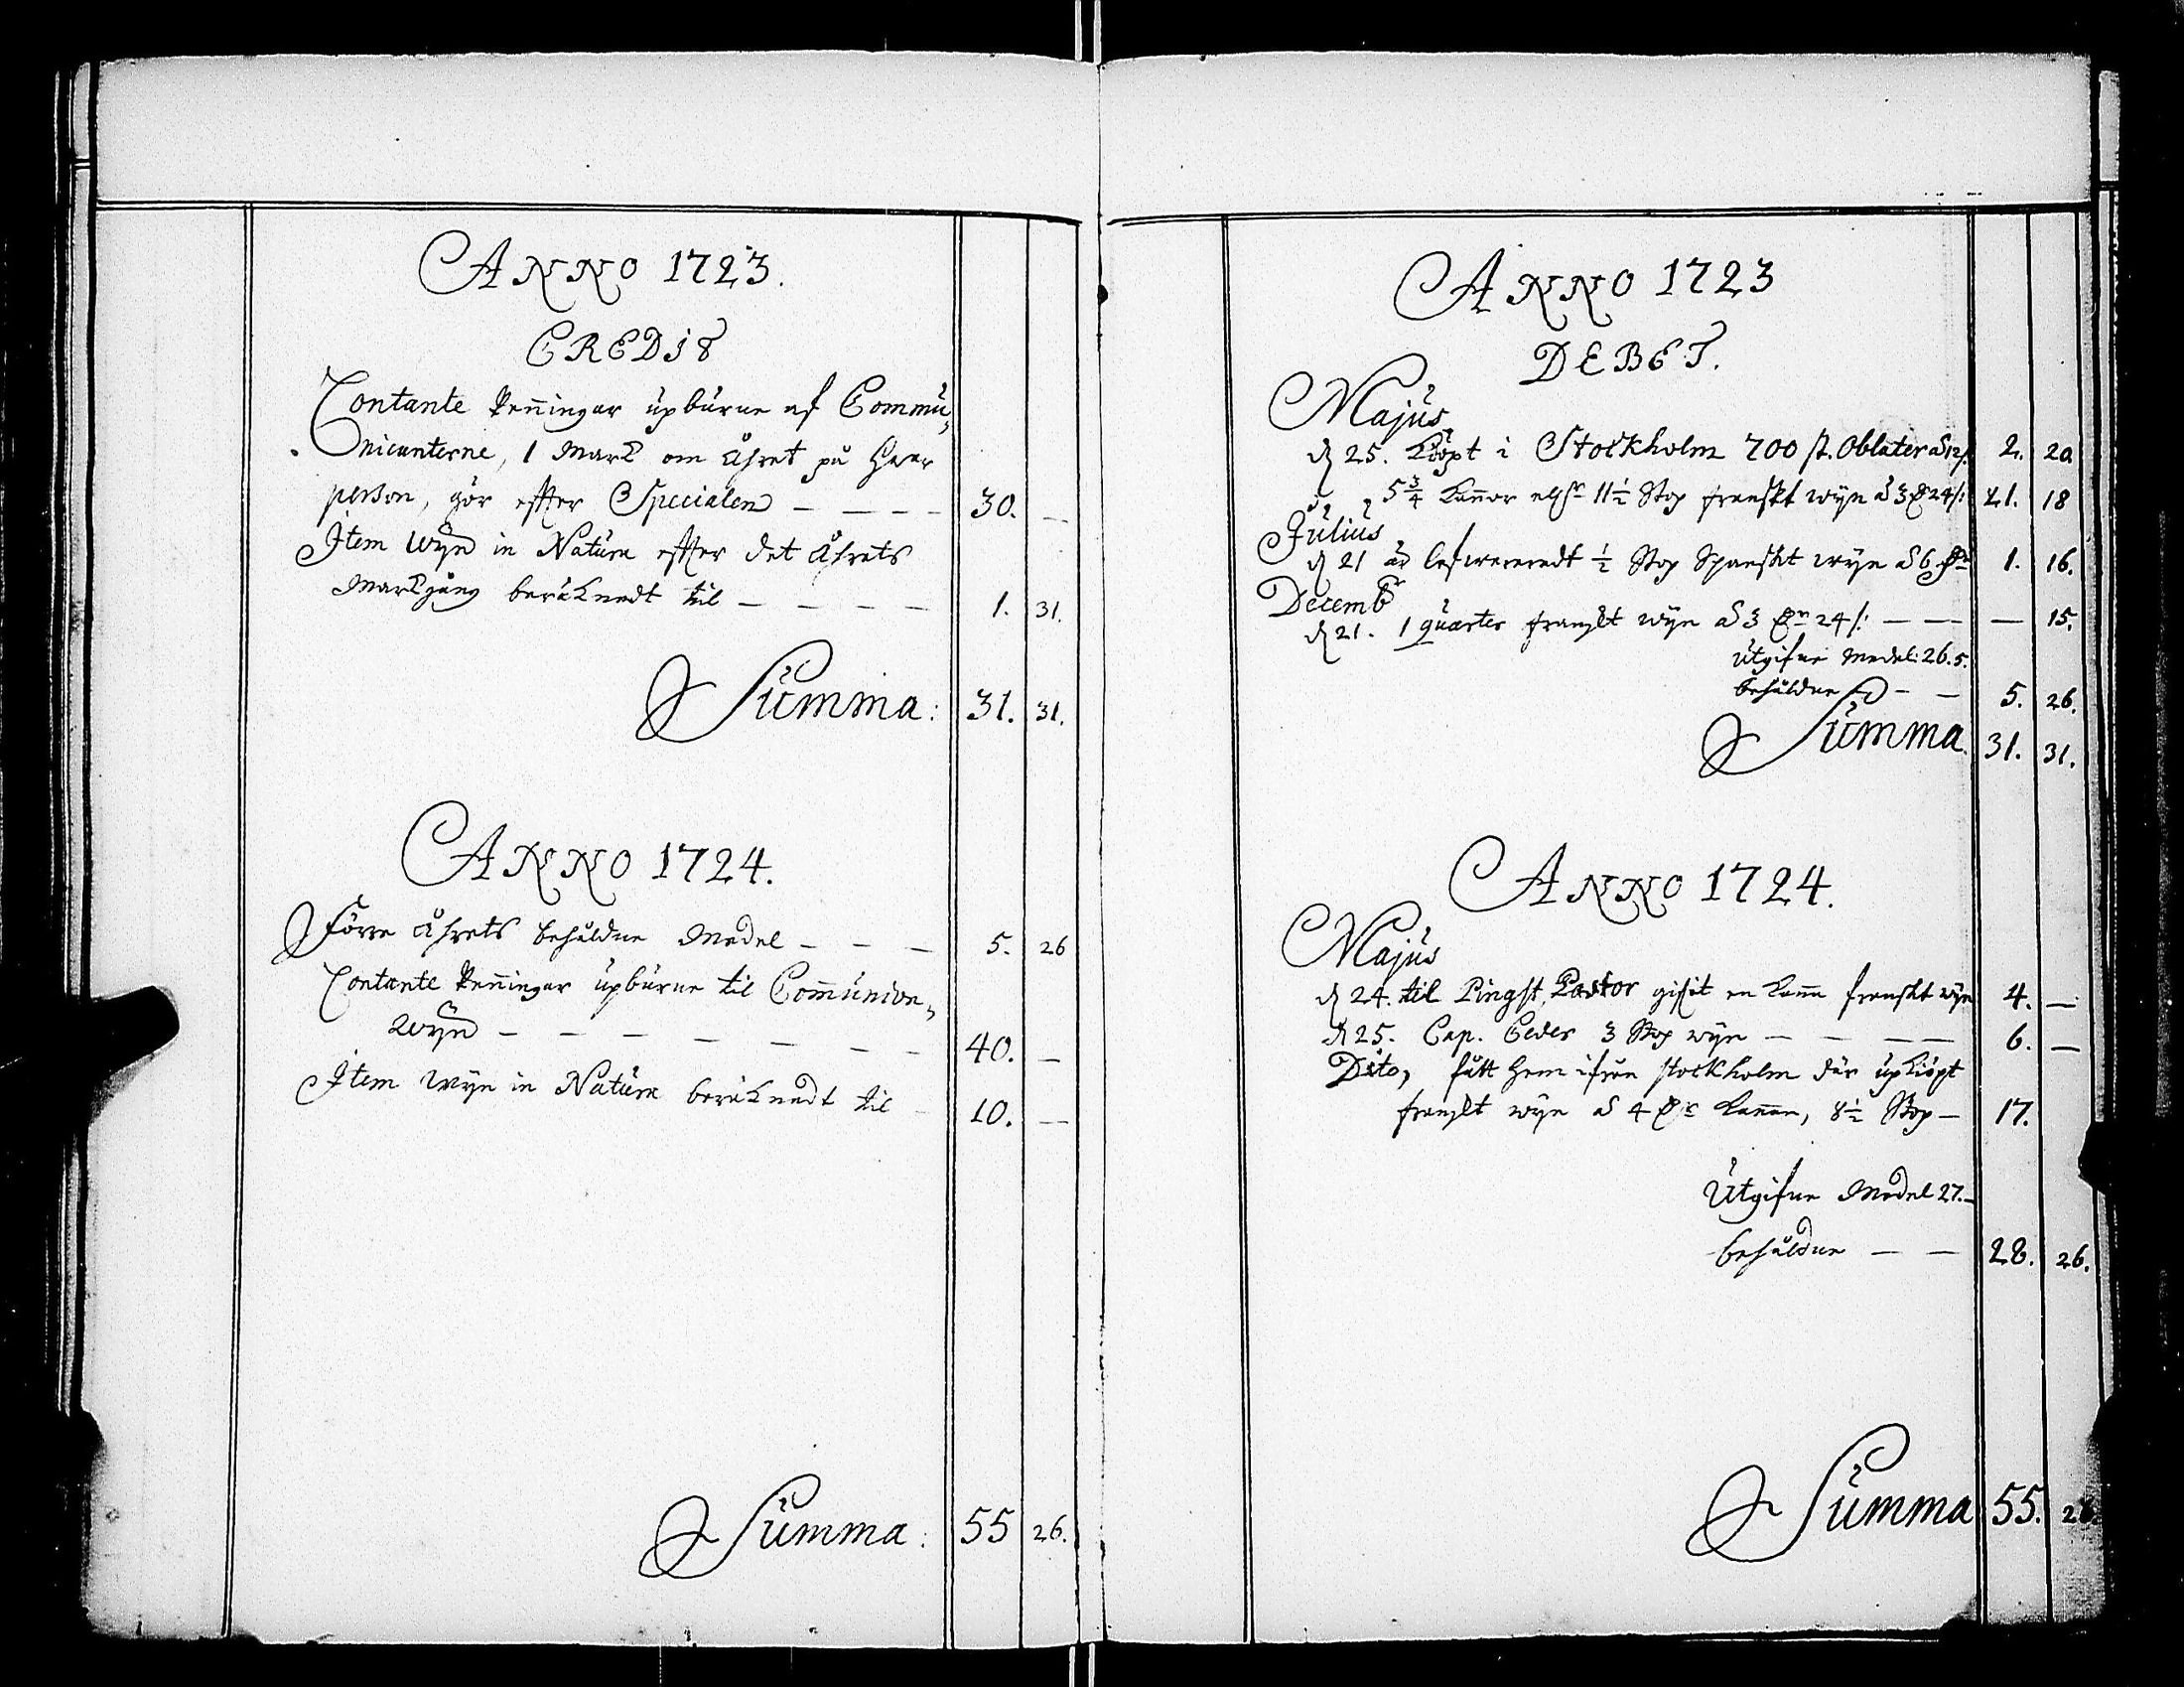 ANNO 1723.
CREDIT
Contante Penningar upburne af Commu„
nicanterne, 1 Mark om Åhret på hwar
person, gör effter Specialen — — — — 30. —
Item Wyn in Natura effter det Åhrets
Markgång beräknadt til — — — — 1. 31.
Summa: 31. 31.
ANNO 1724.
Förre Åhrets behåldne Medel — — — 5. 26
Contante Penningar upburne til Communion„
Wyn — — — — — — 40. —
Item Wyn in Natura beräknadt til — 10. —
Summa: 55 26.
ANNO 1723
DEBET.
Majus
d 25. Kiöpt i Stockholm 700 st. Oblater à 12/: 2. 20
5 3/4 Kannor 11 1/2 Stop franskt wyn à 3 24/: 21. 18
Julius
d 21 är 1/2 Stop Spanskt wyn à 6 1. 16.
Decemb
d 21. 1 quarter franskt wyn à 3 24/: — — — 15.
Utgifne Medel: 26. 5.
behåldne — — 5. 26.
Summa. 31. 31.
ANNO 1724.
Majus
d 24. til Pingst, Pastor gifvit en Kanna franskt wyn 4. —
d 25. Cap. 3 Stop wyn — — — — 6. —
Dito, fått hem ifrån Stockholm där upkiöpt
franskt wyn à 4 Kannan, 8 1/2 Stop — 17.
Utgifne Medel 27. —
behåldne — — 28. 26.
Summa 55. 26.